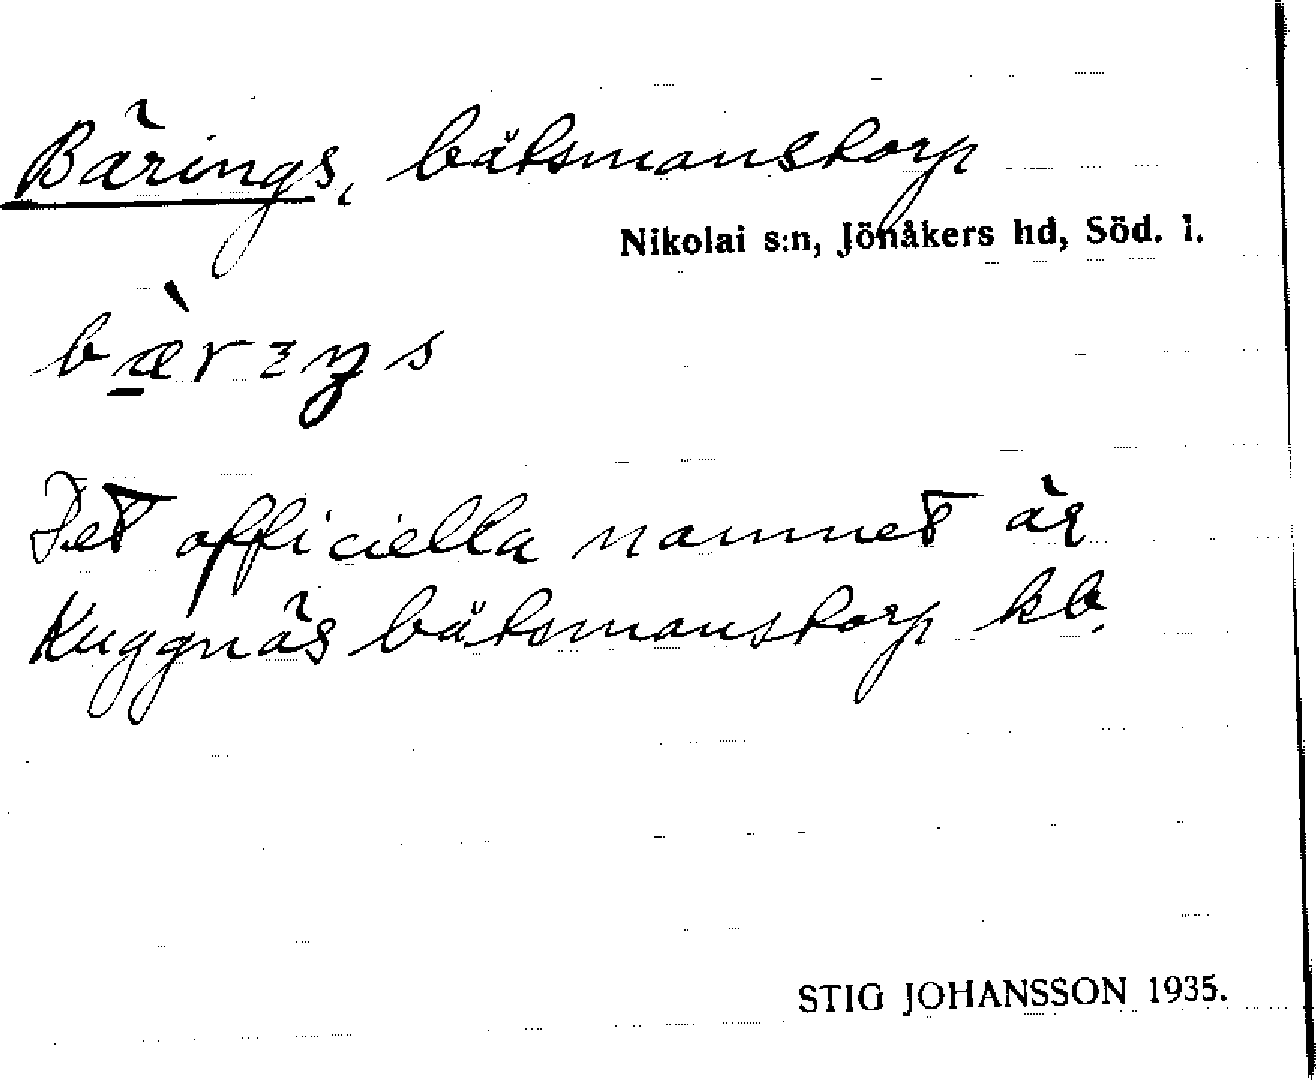 Bärings, båtsmanstorp
Nikolai s:n, Jönåkers hd, Söd. l.
bæ̀rɪŋs
Det officiella namnet är
Kuggnäs båtsmanstorp kb.
STIG JOHANSSON 1935.